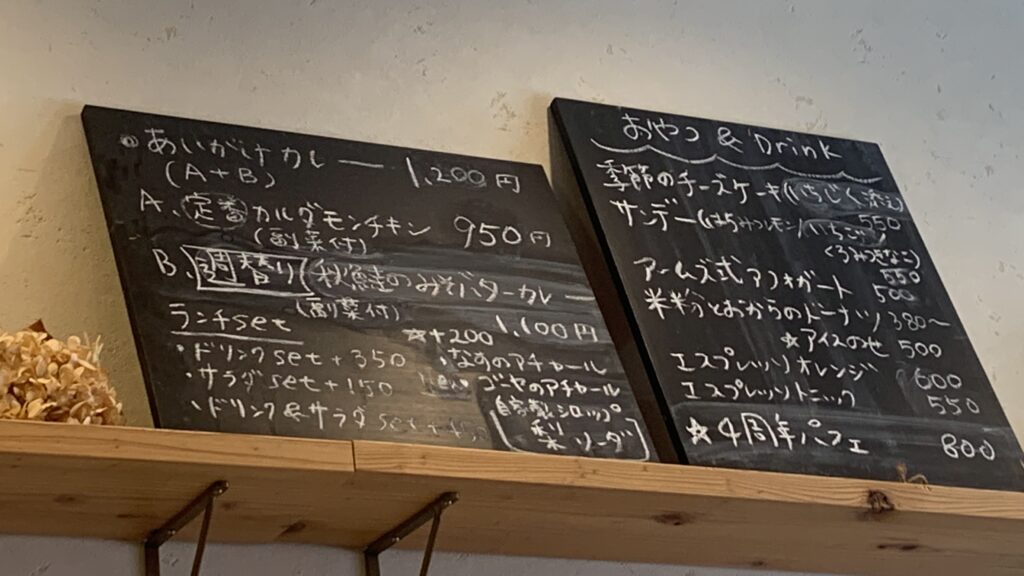 あいがけカレー 1,200円
(A+B)
A、定番 カルダモンチキン 950円
(副菜付)
B、週替り (秋鮭のみそバターカレー
(副菜付) 1,100円
ランチset
・ドリンクset+350
・サラダset+150
・ドリンク&サラダset+
☆+200
・なすのアチャール
ゴーヤのアチャール
自家製シロップ
梨ソーダ
おやつ & Drink
季節のチーズケーキ
サンデー(はちみつレモン/いちご 550
アームズ式アフォガート 500
米粉とおからのドーナツ 380〜
☆アイスのせ 500
エスプレッソオレンジ 600
エスプレッソトニック 550
☆4周年パフェ 800